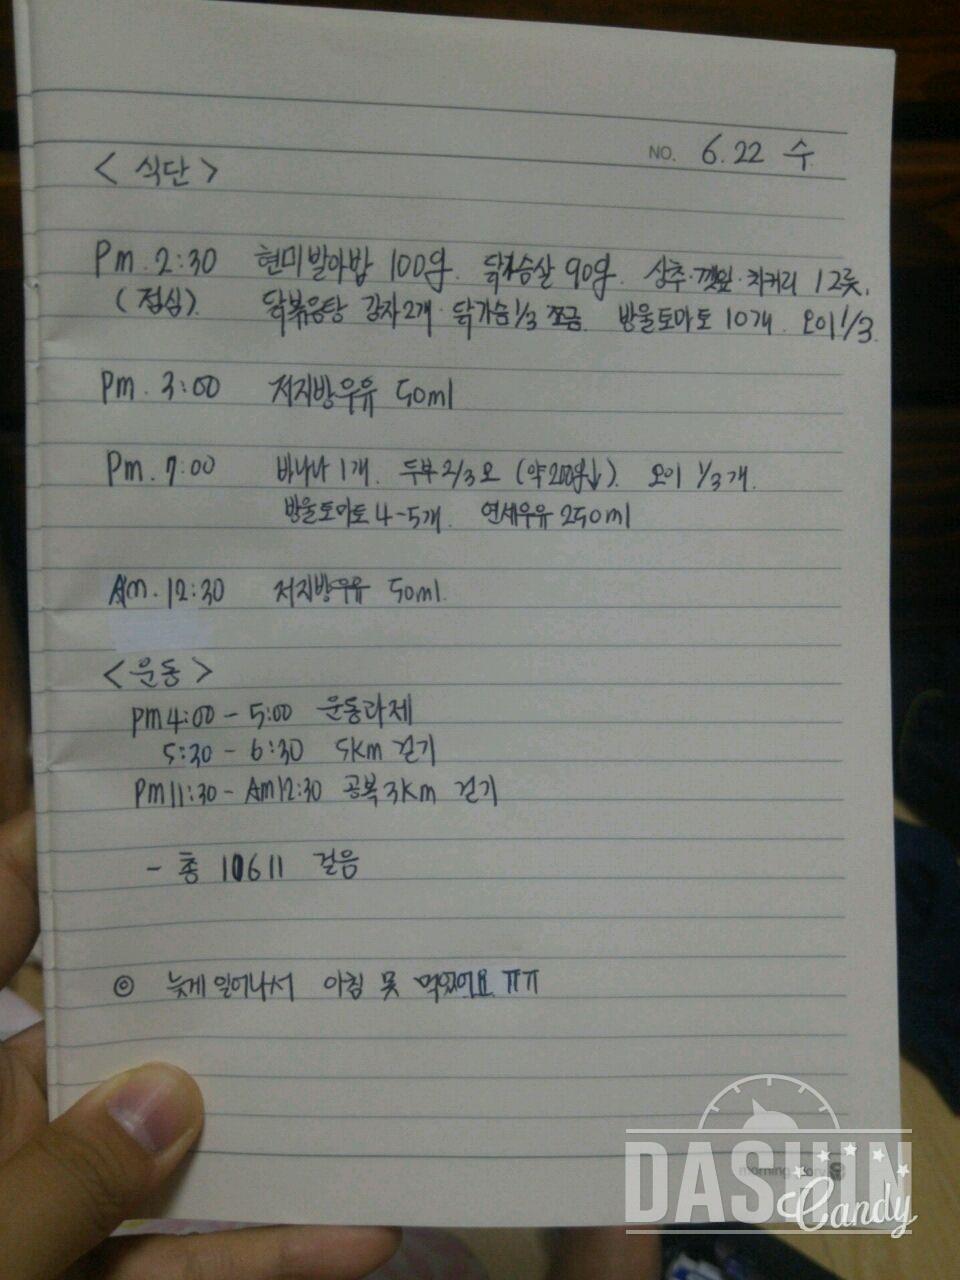 NO. 6.22 수
< 식단 >
Pm. 2:30 현미발아밥 100g. 닭가슴살 90g. 상추·깻잎·치커리 12롯.
(점심). 닭볶음탕 감자2개·닭가슴1/3 쪼금. 방울토마토 10개. 오이1/3.
Pm. 3:00 저지방우유 50ml
Pm. 7:00 바나나 1개. 두부2/3모 (약200g↓). 오이 1/3개.
방울토마토 4-5개. 연세우유 250ml
Am. 12:30 저지방우유 50ml.
< 운동 >
pm4:00 - 5:00 운동과제
5:30 - 6:30 5km 걷기
Pm11:30 - Am12:30 공복3km 걷기
- 총 10611 걸음
◎ 늦게 일어나서 아침 못 먹었어요 ㅠㅠ
morning glory
DASHIN
Candy